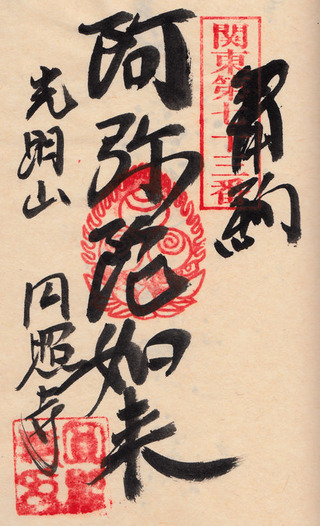 関東第七十三番
阿弥陀如来
光明山 円照寺